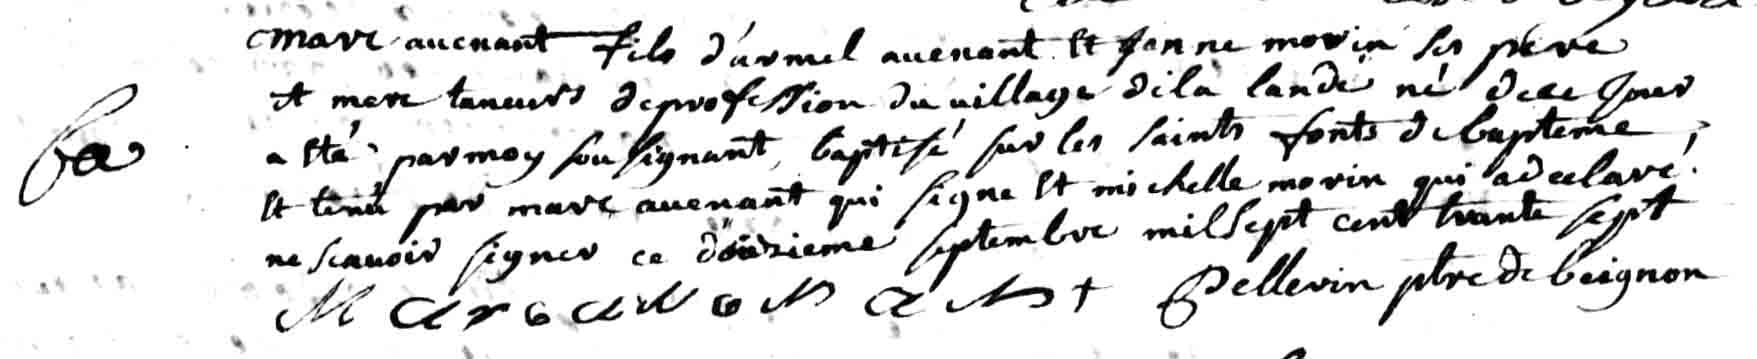 marc auenant fils d'armel auenant Et Jenne morin ses pere
et mere taneurs de profession du uillage de la lande né de ce Jour
ba
a Eté par moy sousignant, baptisé sur les saints fonts de bapteme,
Et tenu par marc auenant qui signe Et michelle morin qui a declaré
ne scauoir signer ce douzieme septembre mil sept cent trante sept
Marc auenant Pellerin ptre de beignon